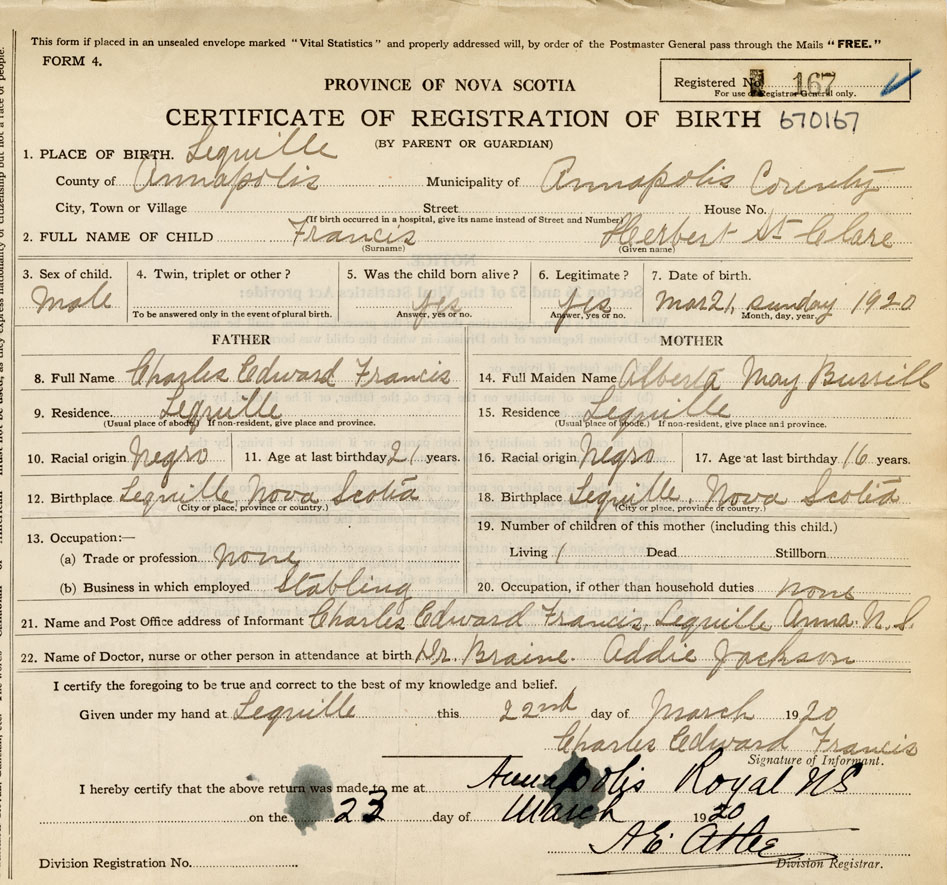 This form if placed in an unsealed envelope marked "Vital Statistics" and properly addressed will, by order of the Postmaster General pass through the Mails "FREE."
FORM 4.
PROVINCE OF NOVA SCOTIA
Registered No. 167
For use of Registrar General only.
CERTIFICATE OF REGISTRATION OF BIRTH 670167
(BY PARENT OR GUARDIAN)
1. PLACE OF BIRTH. Lequille
County of Annapolis Municipality of Annapolis County
City, Town or Village Street House No.
(If birth occurred in a hospital, give its name instead of Street and Number)
2. FULL NAME OF CHILD Francis Herbert St Clare
(Surname) (Given name)
3. Sex of child. 4. Twin, triplet or other? 5. Was the child born alive? 6. Legitimate? 7. Date of birth.
Male yes yes Mar 21, sunday 1920
To be answered only in the event of plural birth. Answer, yes or no. Answer, yes or no. Month, day, year.
FATHER MOTHER
8. Full Name Charles Edward Francis 14. Full Maiden Name Alberta May Burrill
9. Residence. Lequille 15. Residence Lequille
(Usual place of abode.) If non-resident, give place and province. (Usual place of abode.) If non-resident, give place and province.
10. Racial origin Negro 11. Age at last birthday 21 years. 16. Racial origin Negro 17. Age at last birthday 16 years.
12. Birthplace Lequille Nova Scotia 18. Birthplace Lequille, Nova Scotia
(City or place, province or country.) (City or place, province or country.)
13. Occupation:— 19. Number of children of this mother (including this child.)
(a) Trade or profession none Living 1 Dead Stillborn
(b) Business in which employed Stabling 20. Occupation, if other than household duties none
21. Name and Post Office address of Informant Charles Edward Francis. Lequille Anna. N.S.
22. Name of Doctor, nurse or other person in attendance at birth Dr. Braine. Addie Jackson
I certify the foregoing to be true and correct to the best of my knowledge and belief.
Given under my hand at Lequille this 22nd day of March 1920
Charles Edward Francis
Signature of Informant.
I hereby certify that the above return was made to me at Annapolis Royal NS
on the 23 day of March 1920
A E Atlee
Division Registration No. Division Registrar.